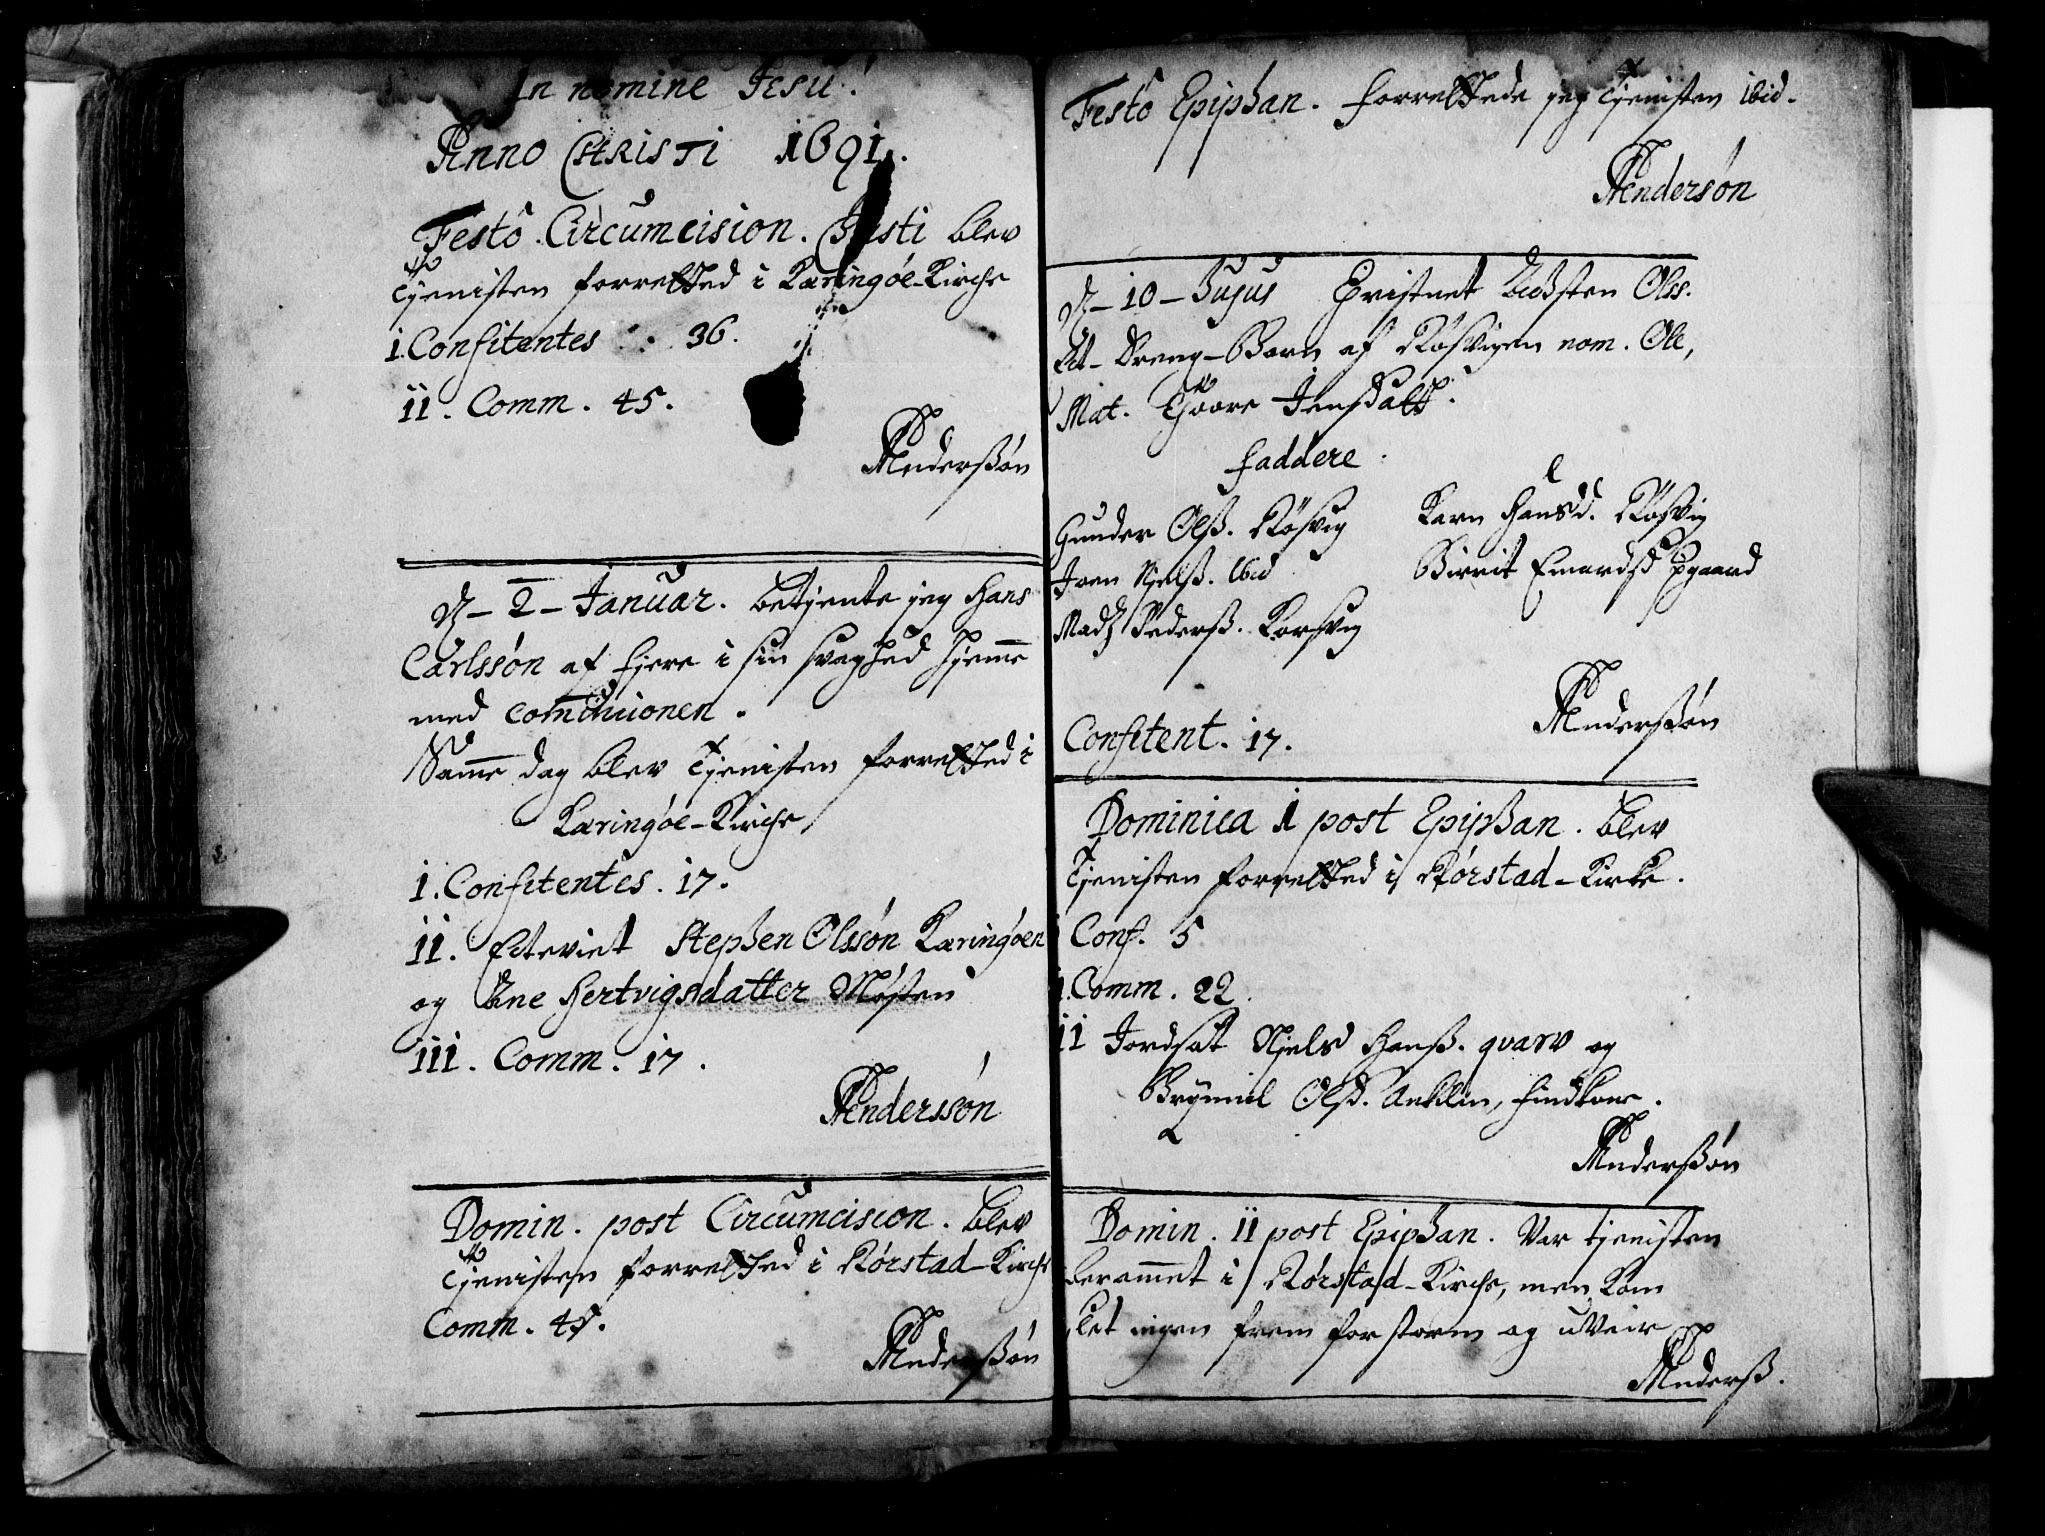 In nomine Jesu!
Anno CHRISTI 1691.
Festo Circumcision. Christi blev
Tjenisten forretted i Kæringøe-Kirche
i. Confitentes. 36.
ii. Comm. 45.
Anderssøn
D. 2 Januar. betjente jeg Hans
Carlssøn af Fjere i sin svaghed hjemme
med communionen.
Samme dag blev Tjenisten forretted i
Kæringøe-Kirche,
i. Confitentes. 17.
ii. Ecteviet Stephen Olssøn Kæringøen
og Ane Hertvigsdatter Møsten
iii. Comm. 17.
Anderssøn
Domin. post Circumcision. blev
Tjenisten forretted i Rørstad-Kirche
Comm. 45.
Anderssøn
Festo Epiphan. forrettede jeg Tjenisten ibid.
Andersøn
D. 10 Hujus Christnet Olss.
Et Dreng-Barn af Røsvigen nom. Ole,
Mat. Jensdatt.
Faddere.
Gunder Olss. Røsvig
Karn Hansd. Røsvig
Joen Njelss. ibid
Birrit
Madz Pederss. Korsvig
Anderssøn
Confitent. 17.
Dominica 1 post Epiphan. blev
Tjenisten forretted i Rørstad-Kirke.
Conf. 5
Comm. 22.
ii Jordsat Njels Hanss. qvarv og
Olss. Findkone.
Anderssøn
Domin. ii post Epiphan. Var tjenisten
berammet i Rørstad-Kirche, men kom
slet ingen frem for storm og uveir
Anderss.